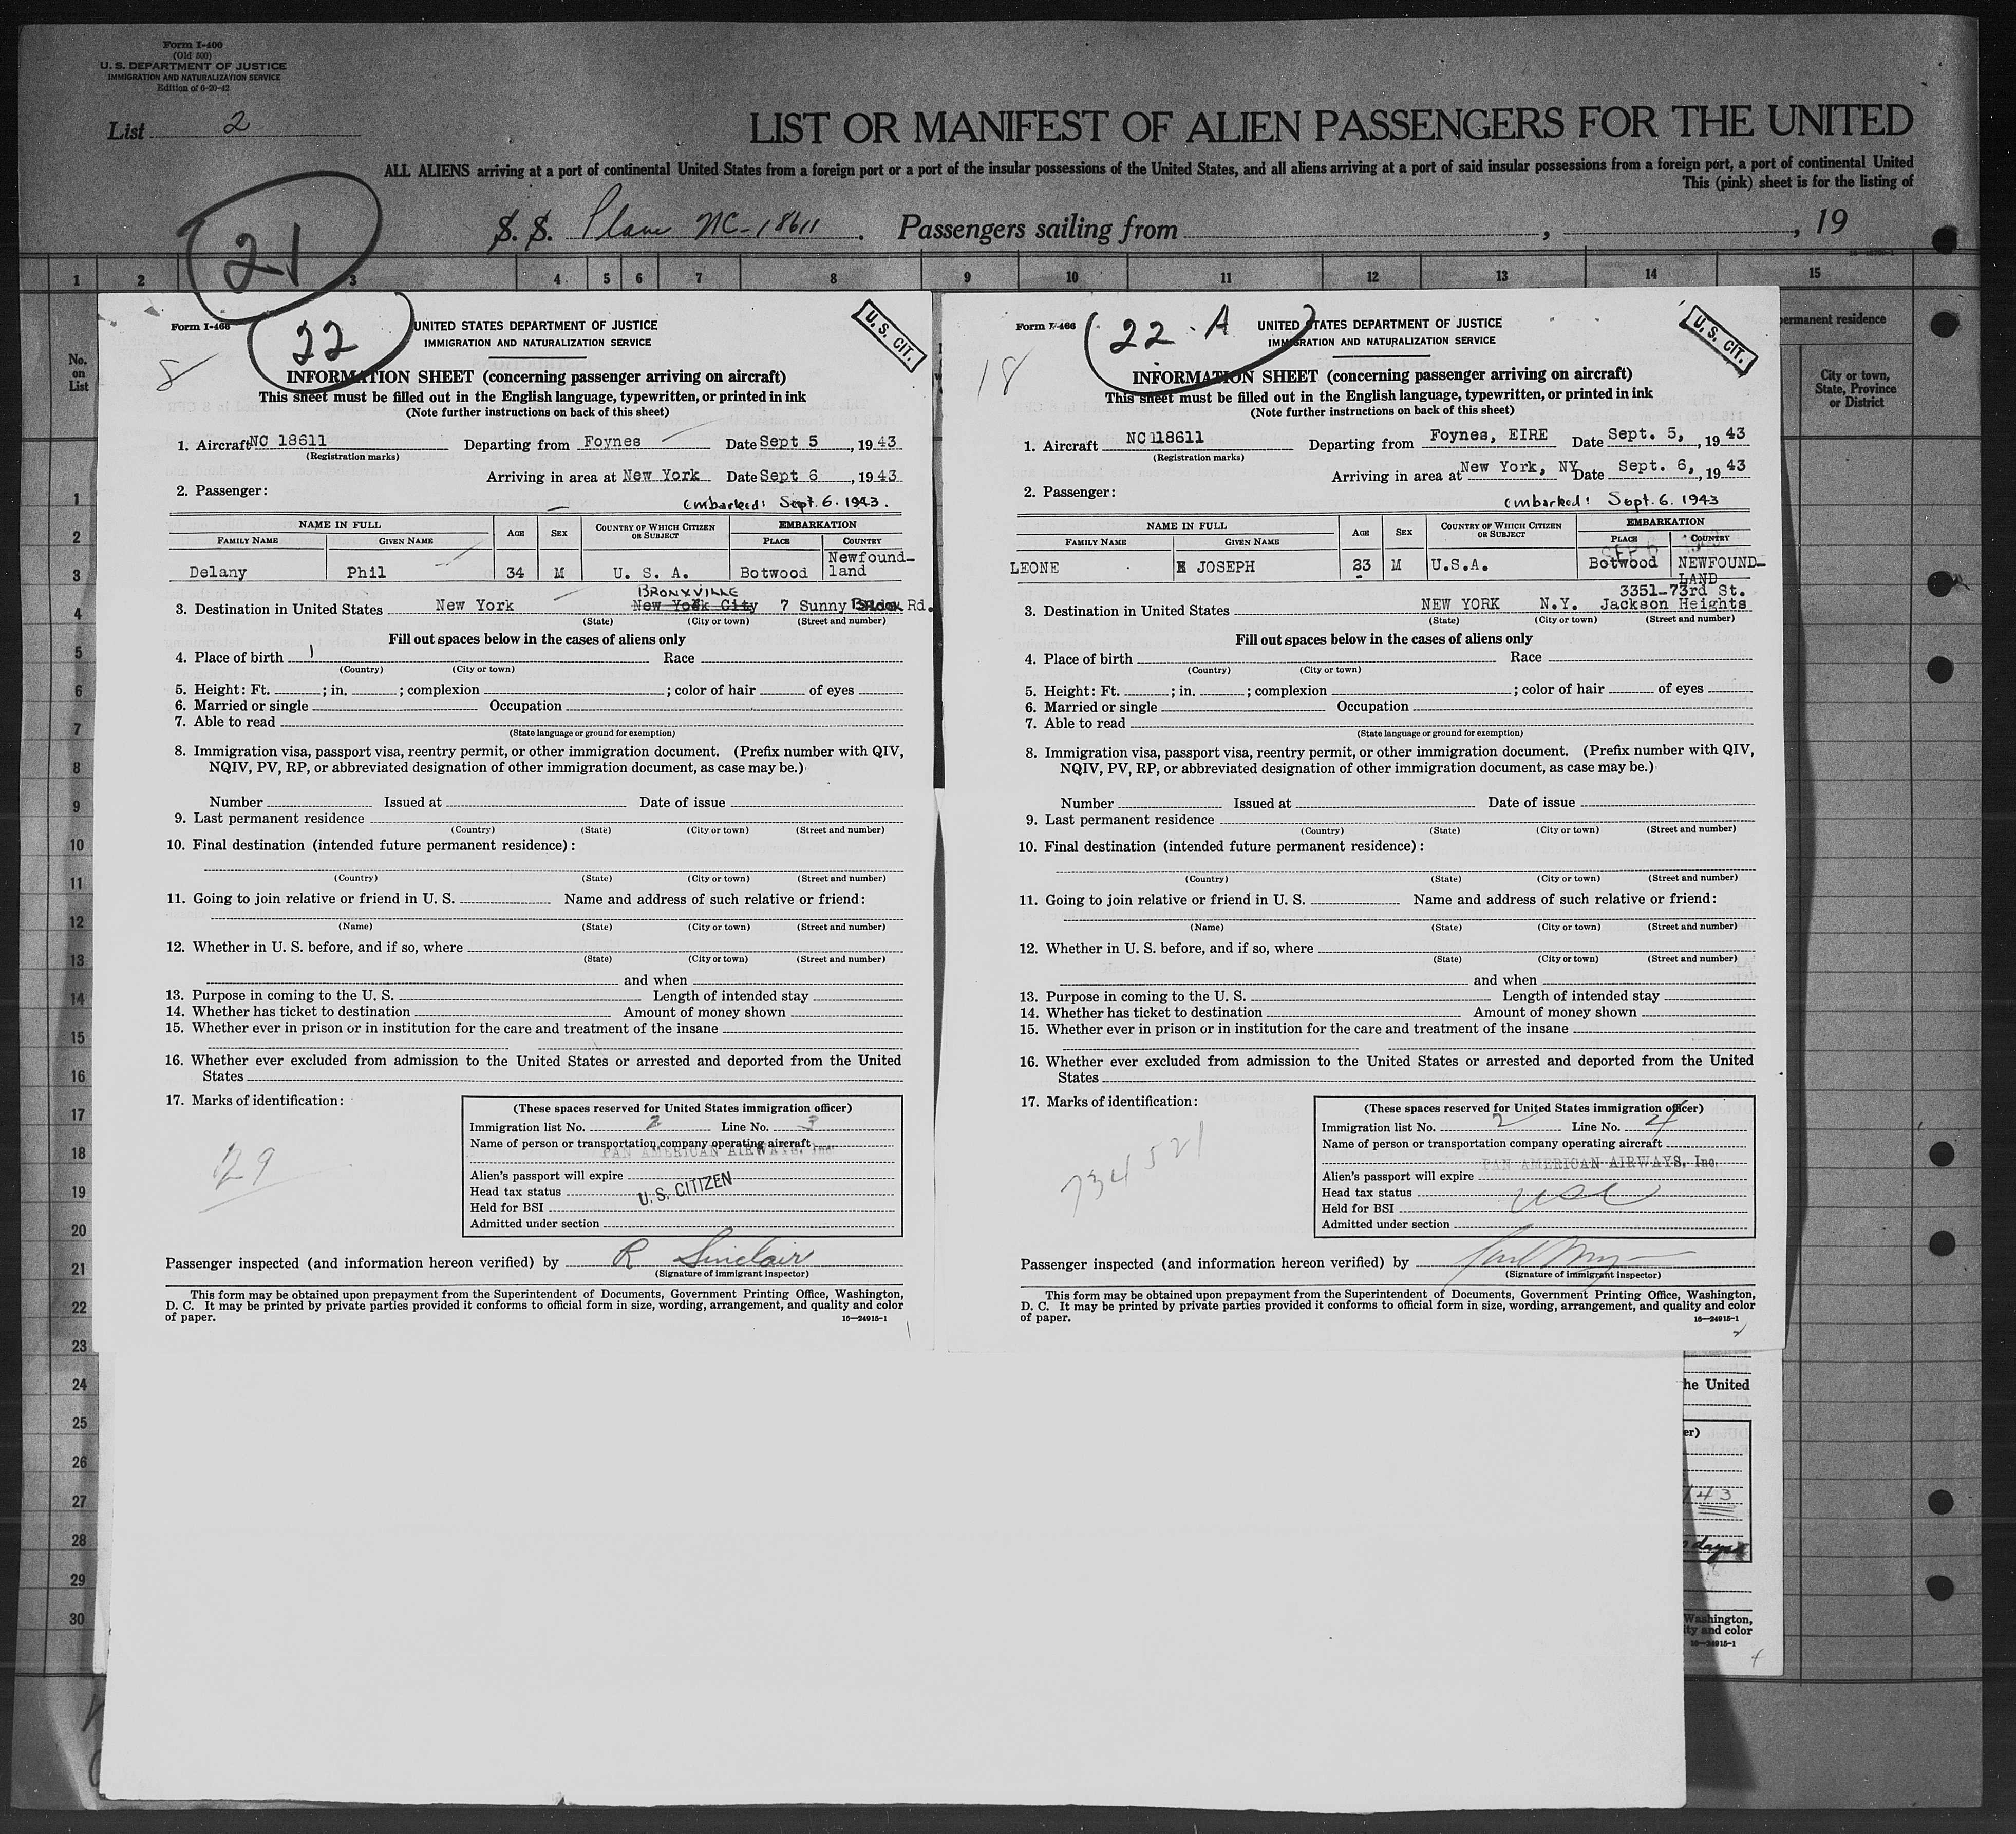 Form I-400
(Old 500)
U. S. DEPARTMENT OF JUSTICE
IMMIGRATION AND NATURALIZATION SERVICE
Edition of 6-20-42
List 2
LIST OR MANIFEST OF ALIEN PASSENGERS FOR THE UNITED
ALL ALIENS arriving at a port of continental United States from a foreign port or a port of the insular possessions of the United States, and all aliens arriving at a port of said insular possessions from a foreign port, a port of continental United
This (pink) sheet is for the listing of
21
S. S. Plane NC-18611 . Passengers sailing from , , 19
1 2 3 4 5 6 7 8 9 10 11 12 13 14 15
No.
on
List
permanent residence
City or town,
State, Province
or District
1
2
3
4
5
6
7
8
9
10
11
12
13
14
15
16
17
18
19
20
21
22
23
24
25
26
27
28
29
30
Form I-466
22
8
U. S. CIT.
UNITED STATES DEPARTMENT OF JUSTICE
IMMIGRATION AND NATURALIZATION SERVICE
INFORMATION SHEET (concerning passenger arriving on aircraft)
This sheet must be filled out in the English language, typewritten, or printed in ink
(Note further instructions on back of this sheet)
1. Aircraft NC 18611 Departing from Foynes Date Sept 5 , 1943
(Registration marks)
Arriving in area at New York Date Sept 6 , 1943
2. Passenger:
Embarked: Sept. 6. 1943.
NAME IN FULL AGE SEX COUNTRY OF WHICH CITIZEN OR SUBJECT EMBARKATION
FAMILY NAME GIVEN NAME PLACE COUNTRY
Delany Phil 34 M U. S. A. Botwood Newfound-
land
BRONXVILLE
3. Destination in United States New York New York City 7 Sunny Rd.
(State) (City or town) (Street and number)
Fill out spaces below in the cases of aliens only
4. Place of birth Race
(Country) (City or town)
5. Height: Ft. ; in. ; complexion ; color of hair of eyes
6. Married or single Occupation
7. Able to read
(State language or ground for exemption)
8. Immigration visa, passport visa, reentry permit, or other immigration document. (Prefix number with QIV,
NQIV, PV, RP, or abbreviated designation of other immigration document, as case may be.)
Number Issued at Date of issue
9. Last permanent residence
(Country) (State) (City or town) (Street and number)
10. Final destination (intended future permanent residence):
(Country) (State) (City or town) (Street and number)
11. Going to join relative or friend in U. S. Name and address of such relative or friend:
(Name) (State) (City or town) (Street and number)
12. Whether in U. S. before, and if so, where
(State) (City or town) (Street and number)
and when
13. Purpose in coming to the U. S. Length of intended stay
14. Whether has ticket to destination Amount of money shown
15. Whether ever in prison or in institution for the care and treatment of the insane
16. Whether ever excluded from admission to the United States or arrested and deported from the United
States
17. Marks of identification:
(These spaces reserved for United States immigration officer)
Immigration list No. 2 Line No. 3
Name of person or transportation company operating aircraft
PAN AMERICAN AIRWAYS, Inc.
Alien's passport will expire
Head tax status U. S. CITIZEN
Held for BSI
Admitted under section
29
Passenger inspected (and information hereon verified) by R Sinclair
(Signature of immigrant inspector)
This form may be obtained upon prepayment from the Superintendent of Documents, Government Printing Office, Washington,
D. C. It may be printed by private parties provided it conforms to official form in size, wording, arrangement, and quality and color
of paper. 16—24915-1
Form I-466
22 . A
18
U. S. CIT.
UNITED STATES DEPARTMENT OF JUSTICE
IMMIGRATION AND NATURALIZATION SERVICE
INFORMATION SHEET (concerning passenger arriving on aircraft)
This sheet must be filled out in the English language, typewritten, or printed in ink
(Note further instructions on back of this sheet)
1. Aircraft NC 18611 Departing from Foynes, EIRE Date Sept. 5, , 1943
(Registration marks)
Arriving in area at New York, NY Date Sept. 6, , 1943
2. Passenger:
Embarked: Sept. 6. 1943
NAME IN FULL AGE SEX COUNTRY OF WHICH CITIZEN OR SUBJECT EMBARKATION
FAMILY NAME GIVEN NAME PLACE COUNTRY
LEONE JOSEPH 23 M U.S.A. Botwood NEWFOUND-
LAND
3351-73rd St.
3. Destination in United States NEW YORK N.Y. Jackson Heights
(State) (City or town) (Street and number)
Fill out spaces below in the cases of aliens only
4. Place of birth Race
(Country) (City or town)
5. Height: Ft. ; in. ; complexion ; color of hair of eyes
6. Married or single Occupation
7. Able to read
(State language or ground for exemption)
8. Immigration visa, passport visa, reentry permit, or other immigration document. (Prefix number with QIV,
NQIV, PV, RP, or abbreviated designation of other immigration document, as case may be.)
Number Issued at Date of issue
9. Last permanent residence
(Country) (State) (City or town) (Street and number)
10. Final destination (intended future permanent residence):
(Country) (State) (City or town) (Street and number)
11. Going to join relative or friend in U. S. Name and address of such relative or friend:
(Name) (State) (City or town) (Street and number)
12. Whether in U. S. before, and if so, where
(State) (City or town) (Street and number)
and when
13. Purpose in coming to the U. S. Length of intended stay
14. Whether has ticket to destination Amount of money shown
15. Whether ever in prison or in institution for the care and treatment of the insane
16. Whether ever excluded from admission to the United States or arrested and deported from the United
States
17. Marks of identification:
(These spaces reserved for United States immigration officer)
Immigration list No. 2 Line No. 4
Name of person or transportation company operating aircraft
PAN AMERICAN AIRWAYS, Inc.
Alien's passport will expire
Head tax status usc
Held for BSI
Admitted under section
734521
Passenger inspected (and information hereon verified) by
(Signature of immigrant inspector)
This form may be obtained upon prepayment from the Superintendent of Documents, Government Printing Office, Washington,
D. C. It may be printed by private parties provided it conforms to official form in size, wording, arrangement, and quality and color
of paper. 16—24915-1
he United
er)
43
days
Washington,
ity and color
16—24915-1